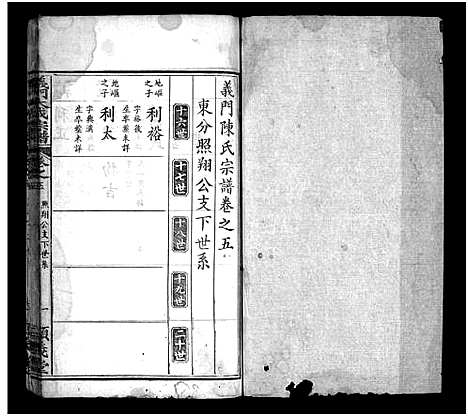 義門陳氏宗譜卷之五
東分照翔公支下世系
十六世
十七世
十八世
十九世
二十世
地崛之子
利裕
字裕後
生卒葬未詳
地崛之子
利太
字典漢
生卒葬未詳
義門陳氏宗譜
卷之五
照翔公支下世系
一